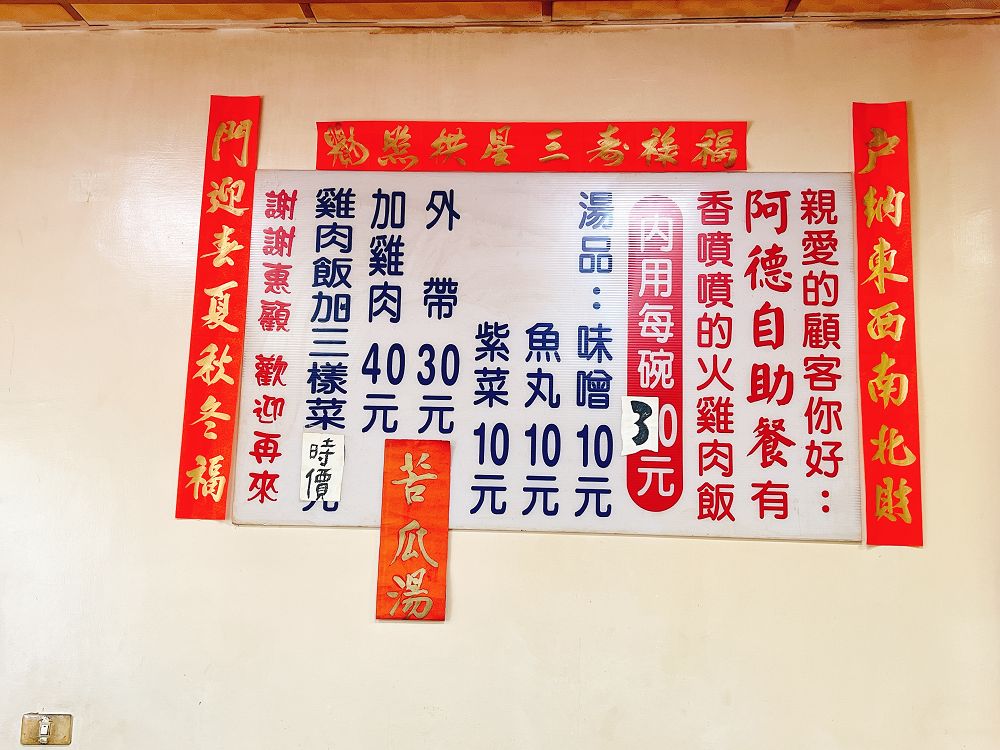 福祿壽三星拱照
戶納東西南北財
親愛的顧客你好：
阿德自助餐有
香噴噴的火雞肉飯
內用每碗30元
湯品：味噌10元
魚丸10元
紫菜10元
外帶30元
加雞肉40元
苦瓜湯
雞肉飯加三樣菜時價元
謝謝惠顧 歡迎再來
門迎春夏秋冬福